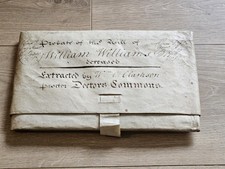 Probate of the Will of
William Williams
deceased
Extracted by
Clarkson
proctor Doctors Commons